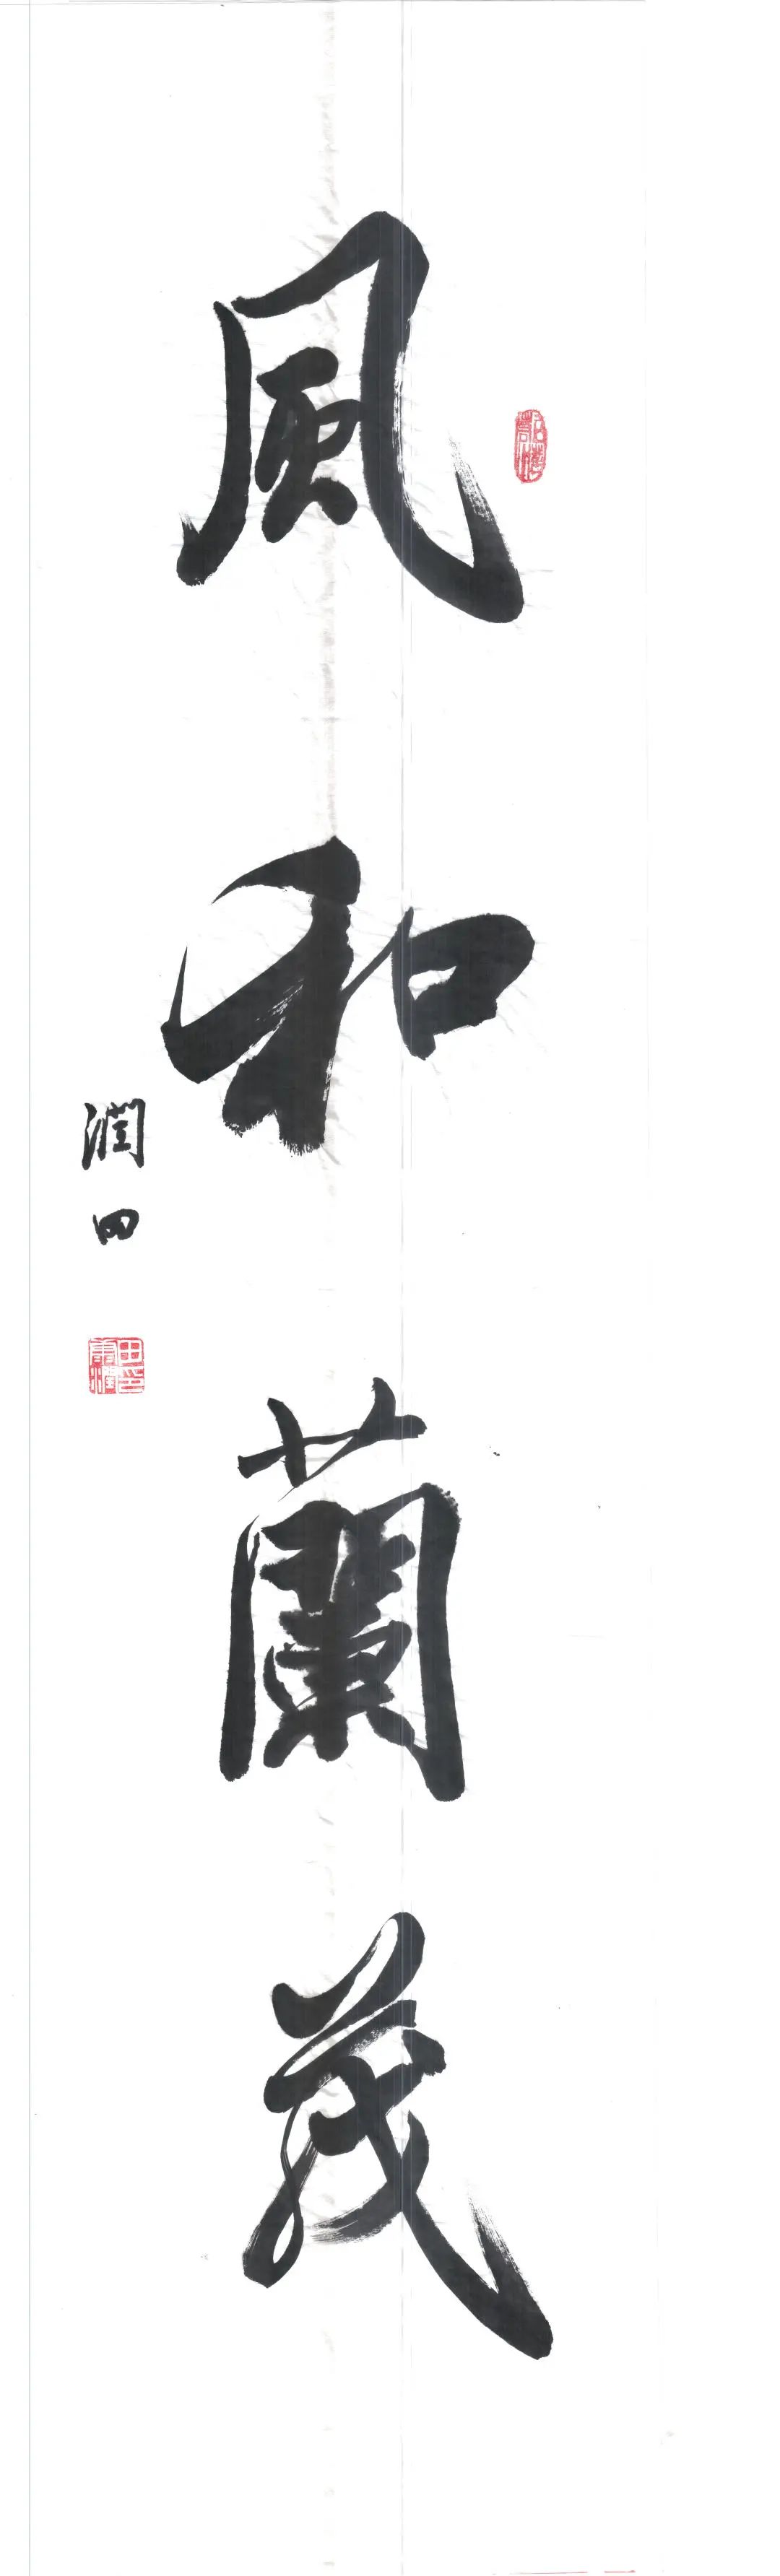 風和蘭茂
潤田